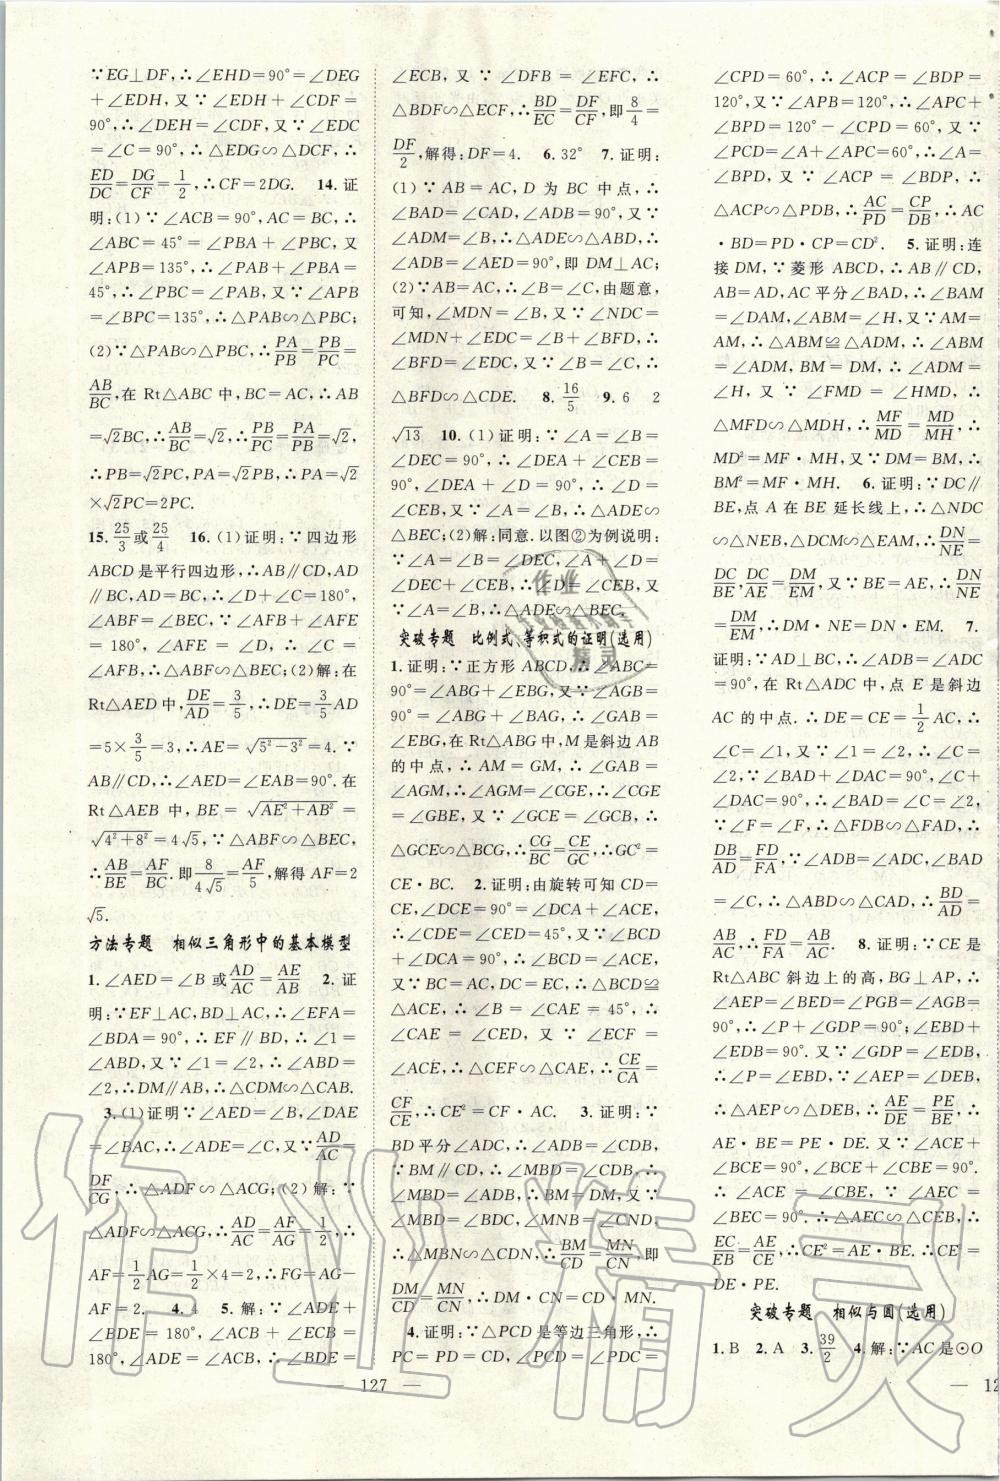 ∵EG⊥DF,∴∠EHD=90°=∠DEG
+∠EDH,又∵∠EDH+∠CDF=
90°,∴∠DEH=∠CDF,又∵∠EDC
=∠C=90°,∴△EDG∽△DCF,∴
ED/DC=DG/CF=1/2,∴CF=2DG. 14.证
明:(1)∵∠ACB=90°,AC=BC,∴
∠ABC=45°=∠PBA+∠PBC,又
∠APB=135°,∴∠PAB+∠PBA=
45°,∴∠PBC=∠PAB,又∵∠APB
=∠BPC=135°,∴△PAB∽△PBC;
(2)∵△PAB∽△PBC,∴PA/PB=PB/PC=
AB/BC,在Rt△ABC中,BC=AC,∴AB
=√2BC,∴AB/BC=√2,∴PB/PC=PA/PB=√2,
∴PB=√2PC,PA=√2PB,∴PA=√2
×√2PC=2PC.
15.25/3或25/4 16.(1)证明:∵四边形
ABCD是平行四边形,∴AB∥CD,AD
∥BC,AD=BC,∴∠D+∠C=180°,
∠ABF=∠BEC,∵∠AFB+∠AFE
=180°,∠AFE=∠D,∴∠C=
∠AFB,∴△ABF∽△BEC;(2)解:在
Rt△AED中,DE/AD=3/5,∴DE=3/5AD
=5×3/5=3,∴AE=√(5²-3²)=4.∵
AB∥CD,∴∠AED=∠EAB=90°.在
Rt△AEB中,BE=√(AE²+AB²)=
√(4²+8²)=4√5,∵△ABF∽△BEC,
∴AB/BE=AF/BC.即8/4√5=AF/5,解得AF=2
√5.
方法专题 相似三角形中的基本模型
1.∠AED=∠B或AD/AC=AE/AB 2.证
明:∵EF⊥AC,BD⊥AC,∴∠EFA=
∠BDA=90°,∴EF∥BD,∴∠1=
∠ABD,又∵∠1=∠2,∴∠ABD=
∠2,∴DM∥AB,∴△CDM∽△CAB.
3.(1)证明∵∠AED=∠B,∠DAE
=∠BAC,∴∠ADE=∠C,又∵AD/AC=
DF/CG,∴△ADF∽△ACG;(2)解:∵
△ADF∽△ACG,∴AD/AC=AF/AG=1/2,∴
AF=1/2AG=1/2×4=2,∴FG=AG-
AF=2. 4.4 5.解:∵∠ADE+
∠BDE=180°,∠ACB+∠ECB=
180°,∠ADE=∠ACB,∴∠BDE=
∠ECB,又∵∠DFB=∠EFC,∴
△BDF∽△ECF,∴BD/EC=DF/CF,即8/4=
DF/2,解得:DF=4. 6.32° 7.证明:
(1)∵AB=AC,D为BC中点,∴
∠BAD=∠CAD,∠ADB=90°,又∵
∠ADM=∠B,∴△ADE∽△ABD,∴
∠ADB=∠AED=90°,即DM⊥AC;
(2)∵AB=AC,∴∠B=∠C,由题意,
可知,∠MDN=∠B,又∵∠NDC=
∠MDN+∠EDC=∠B+∠BFD,∴
∠BFD=∠EDC,又∵∠B=∠C,∴
△BFD∽△CDE. 8.16/5 9.6 2
√13 10.(1)证明:∵∠A=∠B=
∠DEC=90°,∴∠DEA+∠CEB=
90°,∠DEA+∠D=90°,∴∠D=
∠CEB,又∵∠A=∠B,∴△ADE∽
△BEC;(2)解:同意.以图②为例说明:
∵∠A=∠B=∠DEC,∠A+∠D=
∠DEC+∠CEB,∴∠D=∠CEB,又
∵∠A=∠B,∴△ADE∽△BEC.
突破专题 比例式、等积式的证明(选用)
1.证明:∵正方形ABCD,∴∠ABC=
90°=∠ABG+∠EBG,又∵∠AGB=
90°=∠ABG+∠BAG,∴∠GAB=
∠EBG,在Rt△ABG中,M是斜边AB
的中点,∴AM=GM,∴∠GAB=
∠AGM,∴∠AGM=∠CGE,∴∠CGE
=∠GBE,又∵∠GCE=∠GCB,∴
△GCE∽△BCG,∴CG/BC=CE/GC,∴GC²=
CE·BC. 2.证明:由旋转可知CD=
CE,∠DCE=90°=∠DCA+∠ACE,
∴∠CDE=∠CED=45°,又∵∠BCD
+∠DCA=90°,∴∠BCD=∠ACE,
又∵BC=AC,DC=EC,∴△BCD≌
△ACE,∴∠B=∠CAE=45°,∴
∠CAE=∠CED,又∵∠ECF=
∠ACE,∴△CEF∽△CAE,∴CE/CA=
CF/CE,∴CE²=CF·AC. 3.证明:∵
BD平分∠ADC,∴∠ADB=∠CDB,
∵BM∥CD,∴∠MBD=∠CDB,∴
∠MBD=∠ADB,∴BM=DM,又∵
∠MBD=∠BDC,∠MNB=∠CND,
∴△MBN∽△CDN,∴BM/CD=MN/CN即
DM/CD=MN/CN,∴DM·CN=CD·MN.
4.证明:∵△PCD是等边三角形,∴
PC=PD=CD,∠PCD=∠PDC=
∠CPD=60°,∴∠ACP=∠BDP=
120°,又∵∠APB=120°,∴∠APC+
∠BPD=120°-∠CPD=60°,又∵
∠PCD=∠A+∠APC=60°,∴∠A=
∠BPD,又∵∠ACP=∠BDP,∴
△ACP∽△PDB,∴AC/PD=CP/DB,∴AC
·BD=PD·CP=CD². 5.证明:连
接DM,∵菱形ABCD,∴AB∥CD,
AB=AD,AC平分∠BAD,∴∠BAM
=∠DAM,∠ABM=∠H,又∵AM=
AM,∴△ABM≌△ADM,∴∠ABM=
∠ADM,BM=DM,∴∠ADM=
∠H,又∵∠FMD=∠HMD,∴
△MFD∽△MDH,∴MF/MD=MD/MH,∴
MD²=MF·MH,又∵DM=BM,∴
BM²=MF·MH. 6.证明:∵DC∥
BE,点A在BE延长线上,∴△NDC
∽△NEB,△DCM∽△EAM,∴DN/NE=
DC/BE,DC/AE=DM/EM,又∵BE=AE,∴DN/NE
=DM/EM,∴DM·NE=DN·EM. 7.
证明:∵AD⊥BC,∴∠ADB=∠ADC
=90°,在Rt△ADC中,点E是斜边
AC的中点.∴DE=CE=1/2AC,∴
∠C=∠1,又∵∠1=∠2,∴∠C=
∠2,∵∠BAD+∠DAC=90°,∠C+
∠DAC=90°,∴∠BAD=∠C=∠2,
∵∠F=∠F,∴△FDB∽△FAD,∴
DB/AD=FD/FA,∵∠ADB=∠ADC,∠BAD
=∠C,∴△ABD∽△CAD,∴BD/AD=
AB/AC,∴FD/FA=AB/AC. 8.证明:∵CE是
Rt△ABC斜边上的高,BG⊥AP,∴
∠AEP=∠BED=∠PGB=∠AGB=
90°,∴∠P+∠GDP=90°;∠EBD+
∠EDB=90°,又∵∠GDP=∠EDB,
∴∠P=∠EBD,∵∠AEP=∠DEB,
∴△AEP∽△DEB,∴AE/DE=PE/BE,∴
AE·BE=PE·DE.又∵∠ACE+
∠BCE=90°,∠BCE+∠CBE=90°.
∴∠ACE=∠CBE,又∵∠AEC=
∠BEC=90°,∴△AEC∽△CEB,∴
EC/EB=AE/CE,∴CE²=AE·BE.∴CE²=
DE·PE.
突破专题 相似与圆(选用)
1.B 2.A 3.39/2 4.解:∵AC是⊙O
— 127 —
— 12
作业精灵